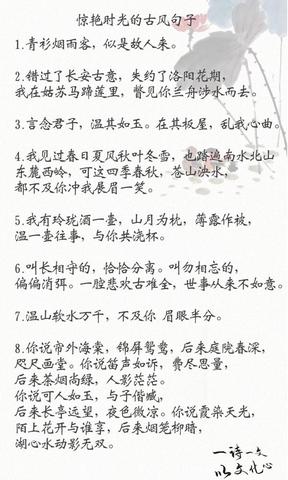 惊艳时光的古风句子
1.青衫烟雨客，似是故人来。
2.错过了长安古意，失约了洛阳花期，
我在姑苏马蹄莲里，瞥见你兰舟涉水而去。
3.言念君子，温其如玉。在其板屋，乱我心曲。
4.我见过春日夏风秋叶冬雪，也踏遍南水北山
东麓西岭，可这四季春秋，苍山泱水，
都不及你冲我展眉一笑。
5.我有玲珑酒一壶，山月为枕，薄露作被，
温一壶往事，与你共浇杯。
6.叫长相守的，恰恰分离。叫勿相忘的，
偏偏消弭。一腔悲欢古难全，世事从来不如意。
7.温山软水万千，不及你 眉眼半分。
8.你说帘外海棠，锦屏鸳鸯，后来庭院春深，
咫尺画堂。你说笛声如诉，费尽思量，
后来茶烟尚绿，人影茫茫。
你说可人如玉，与子偕臧，
后来长亭远望，夜色微凉。你说霞染天光，
陌上花开与谁享，后来烟笼柳暗，
湖心水动影无双。
一诗一文
以文化心